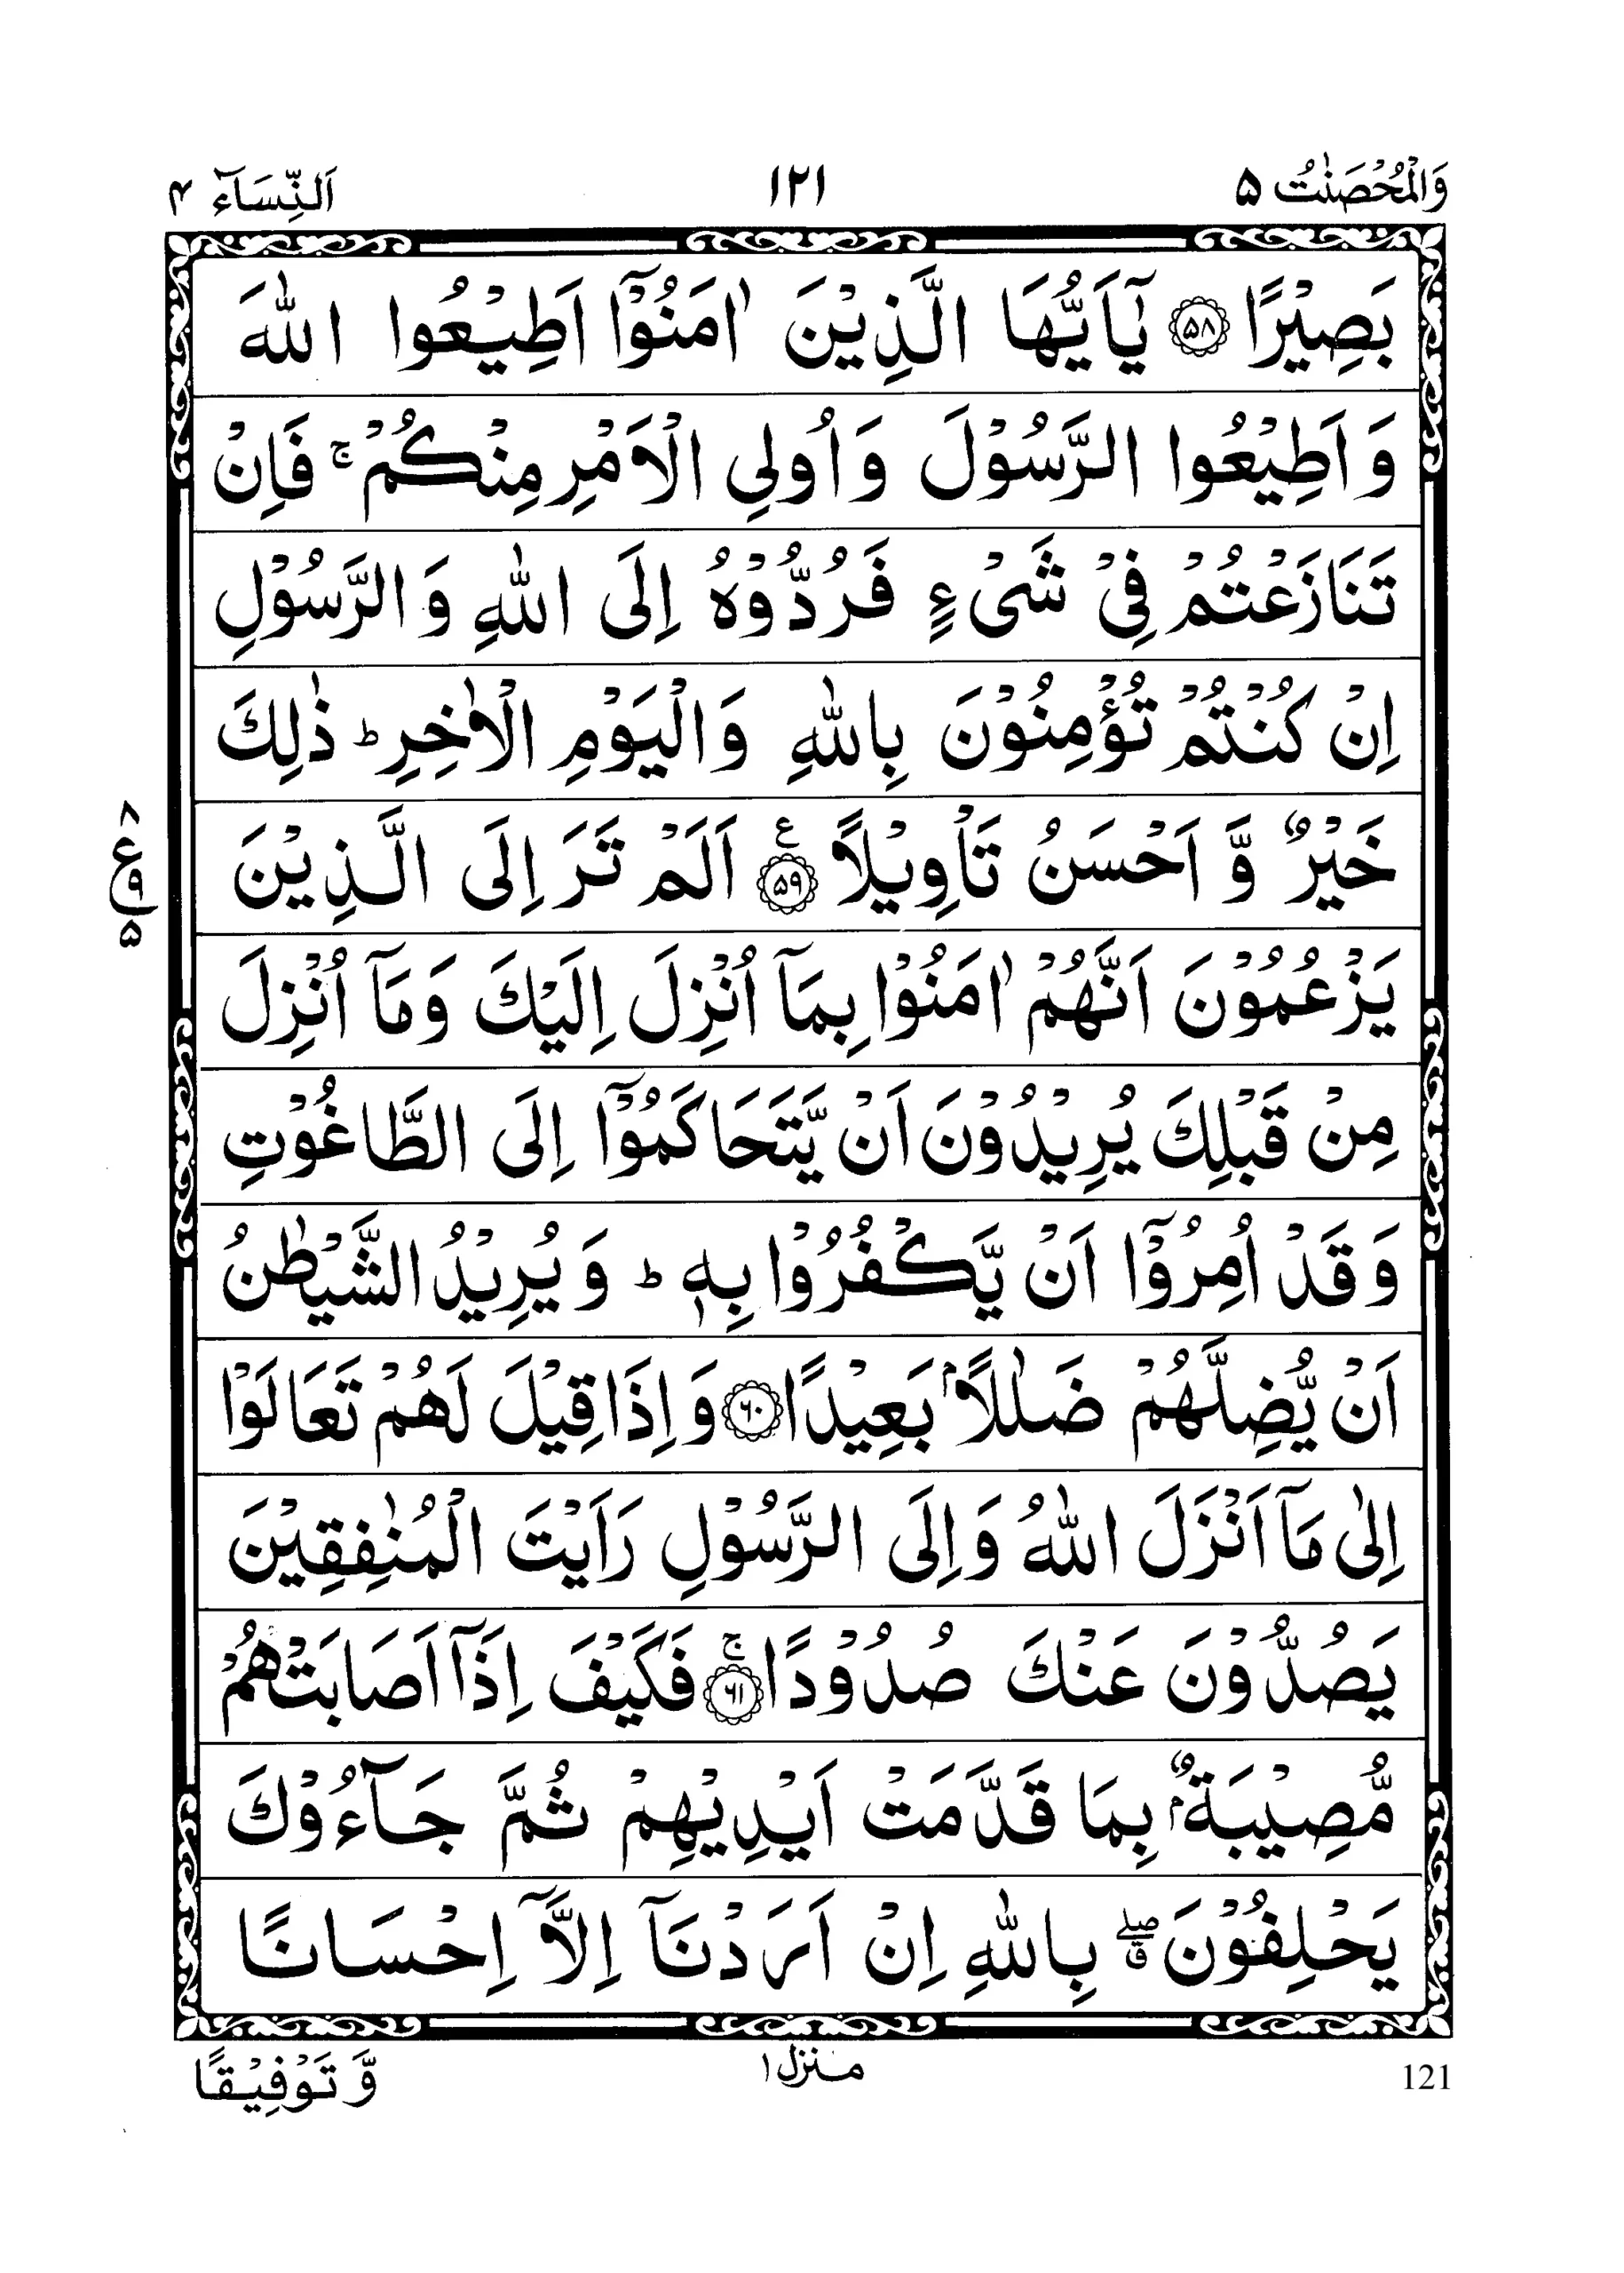 وَالْمُحْصَنٰتُ ۵ ١٢١ اَلنِّسَآء ۴
بَصِيْرًا ﴿۵۸﴾ يٰٓاَيُّهَا الَّذِيْنَ اٰمَنُوْٓا اَطِيْعُوا اللّٰهَ
وَاَطِيْعُوا الرَّسُوْلَ وَاُولِي الْاَمْرِ مِنْكُمْ ۚ فَاِنْ
تَنَازَعْتُمْ فِيْ شَيْءٍ فَرُدُّوْهُ اِلَى اللّٰهِ وَالرَّسُوْلِ
اِنْ كُنْتُمْ تُؤْمِنُوْنَ بِاللّٰهِ وَالْيَوْمِ الْاٰخِرِ ؕ ذٰلِكَ
خَيْرٌ وَّ اَحْسَنُ تَاْوِيْلًا ﴿۵۹﴾ ع اَلَمْ تَرَ اِلَى الَّذِيْنَ
۸
ع
۹
۵
يَزْعُمُوْنَ اَنَّهُمْ اٰمَنُوْا بِمَآ اُنْزِلَ اِلَيْكَ وَمَآ اُنْزِلَ
مِنْ قَبْلِكَ يُرِيْدُوْنَ اَنْ يَّتَحَاكَمُوْٓا اِلَى الطَّاغُوْتِ
وَقَدْ اُمِرُوْٓا اَنْ يَّكْفُرُوْا بِهٖ ؕ وَيُرِيْدُ الشَّيْطٰنُ
اَنْ يُّضِلَّهُمْ ضَلٰلًاۢ بَعِيْدًا ﴿۶۰﴾ وَاِذَا قِيْلَ لَهُمْ تَعَالَوْا
اِلٰى مَآ اَنْزَلَ اللّٰهُ وَاِلَى الرَّسُوْلِ رَاَيْتَ الْمُنٰفِقِيْنَ
يَصُدُّوْنَ عَنْكَ صُدُوْدًا ﴿۶۱﴾ ۚ فَكَيْفَ اِذَآ اَصَابَتْهُمْ
مُّصِيْبَةٌۢ بِمَا قَدَّمَتْ اَيْدِيْهِمْ ثُمَّ جَآءُوْكَ
يَحْلِفُوْنَ ۖق بِاللّٰهِ اِنْ اَرَدْنَآ اِلَّآ اِحْسَانًا
وَّ تَوْفِيْقًا
منزل ١
121